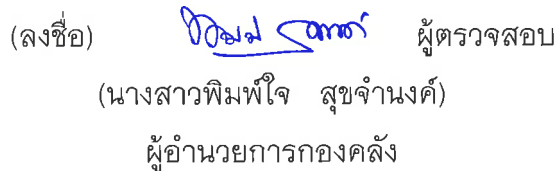 (ลงชื่อ) ผู้ตรวจสอบ
(นางสาวพิมพ์ใจ สุขจำนงค์)
ผู้อำนวยการกองคลัง